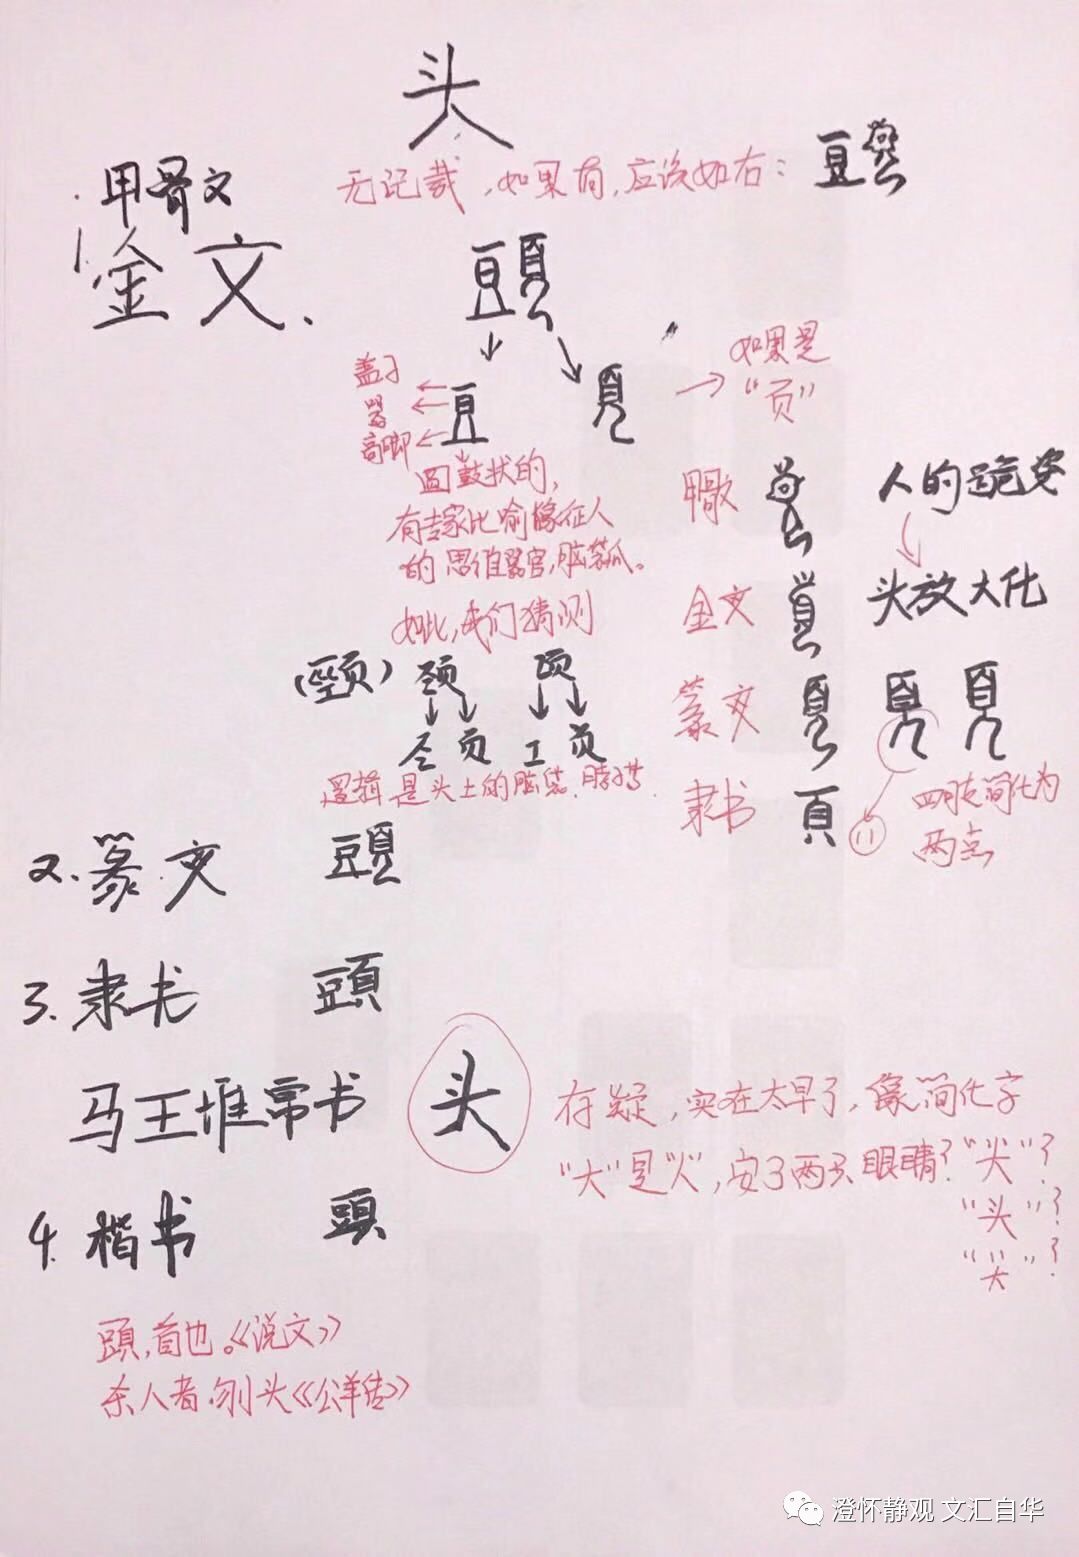 头
甲骨文 无记载，如果有，应该如右：
1. 金文. 頭
如果是
“页”
盖子
器
高脚
豆 頁
圆鼓状的，
有专家比喻像征人
的思维器官，脑袋瓜。
如此，我们猜测
(頸) 颈 项
页 工 页
逻辑是头上的脑袋、脖子等.
人的跪姿
金文 头放大化
篆文
隶书 頁
四肢简化为
两点
2. 篆文 頭
3. 隶书 頭
马王堆帛书 头
存疑，实在太早了，像简化字
“大”是“人”，安了两只眼睛？“尖”？
“头”？
4. 楷书 頭
頭，首也。《说文》
杀人者.刎头《公羊传》
澄怀静观 文汇自华